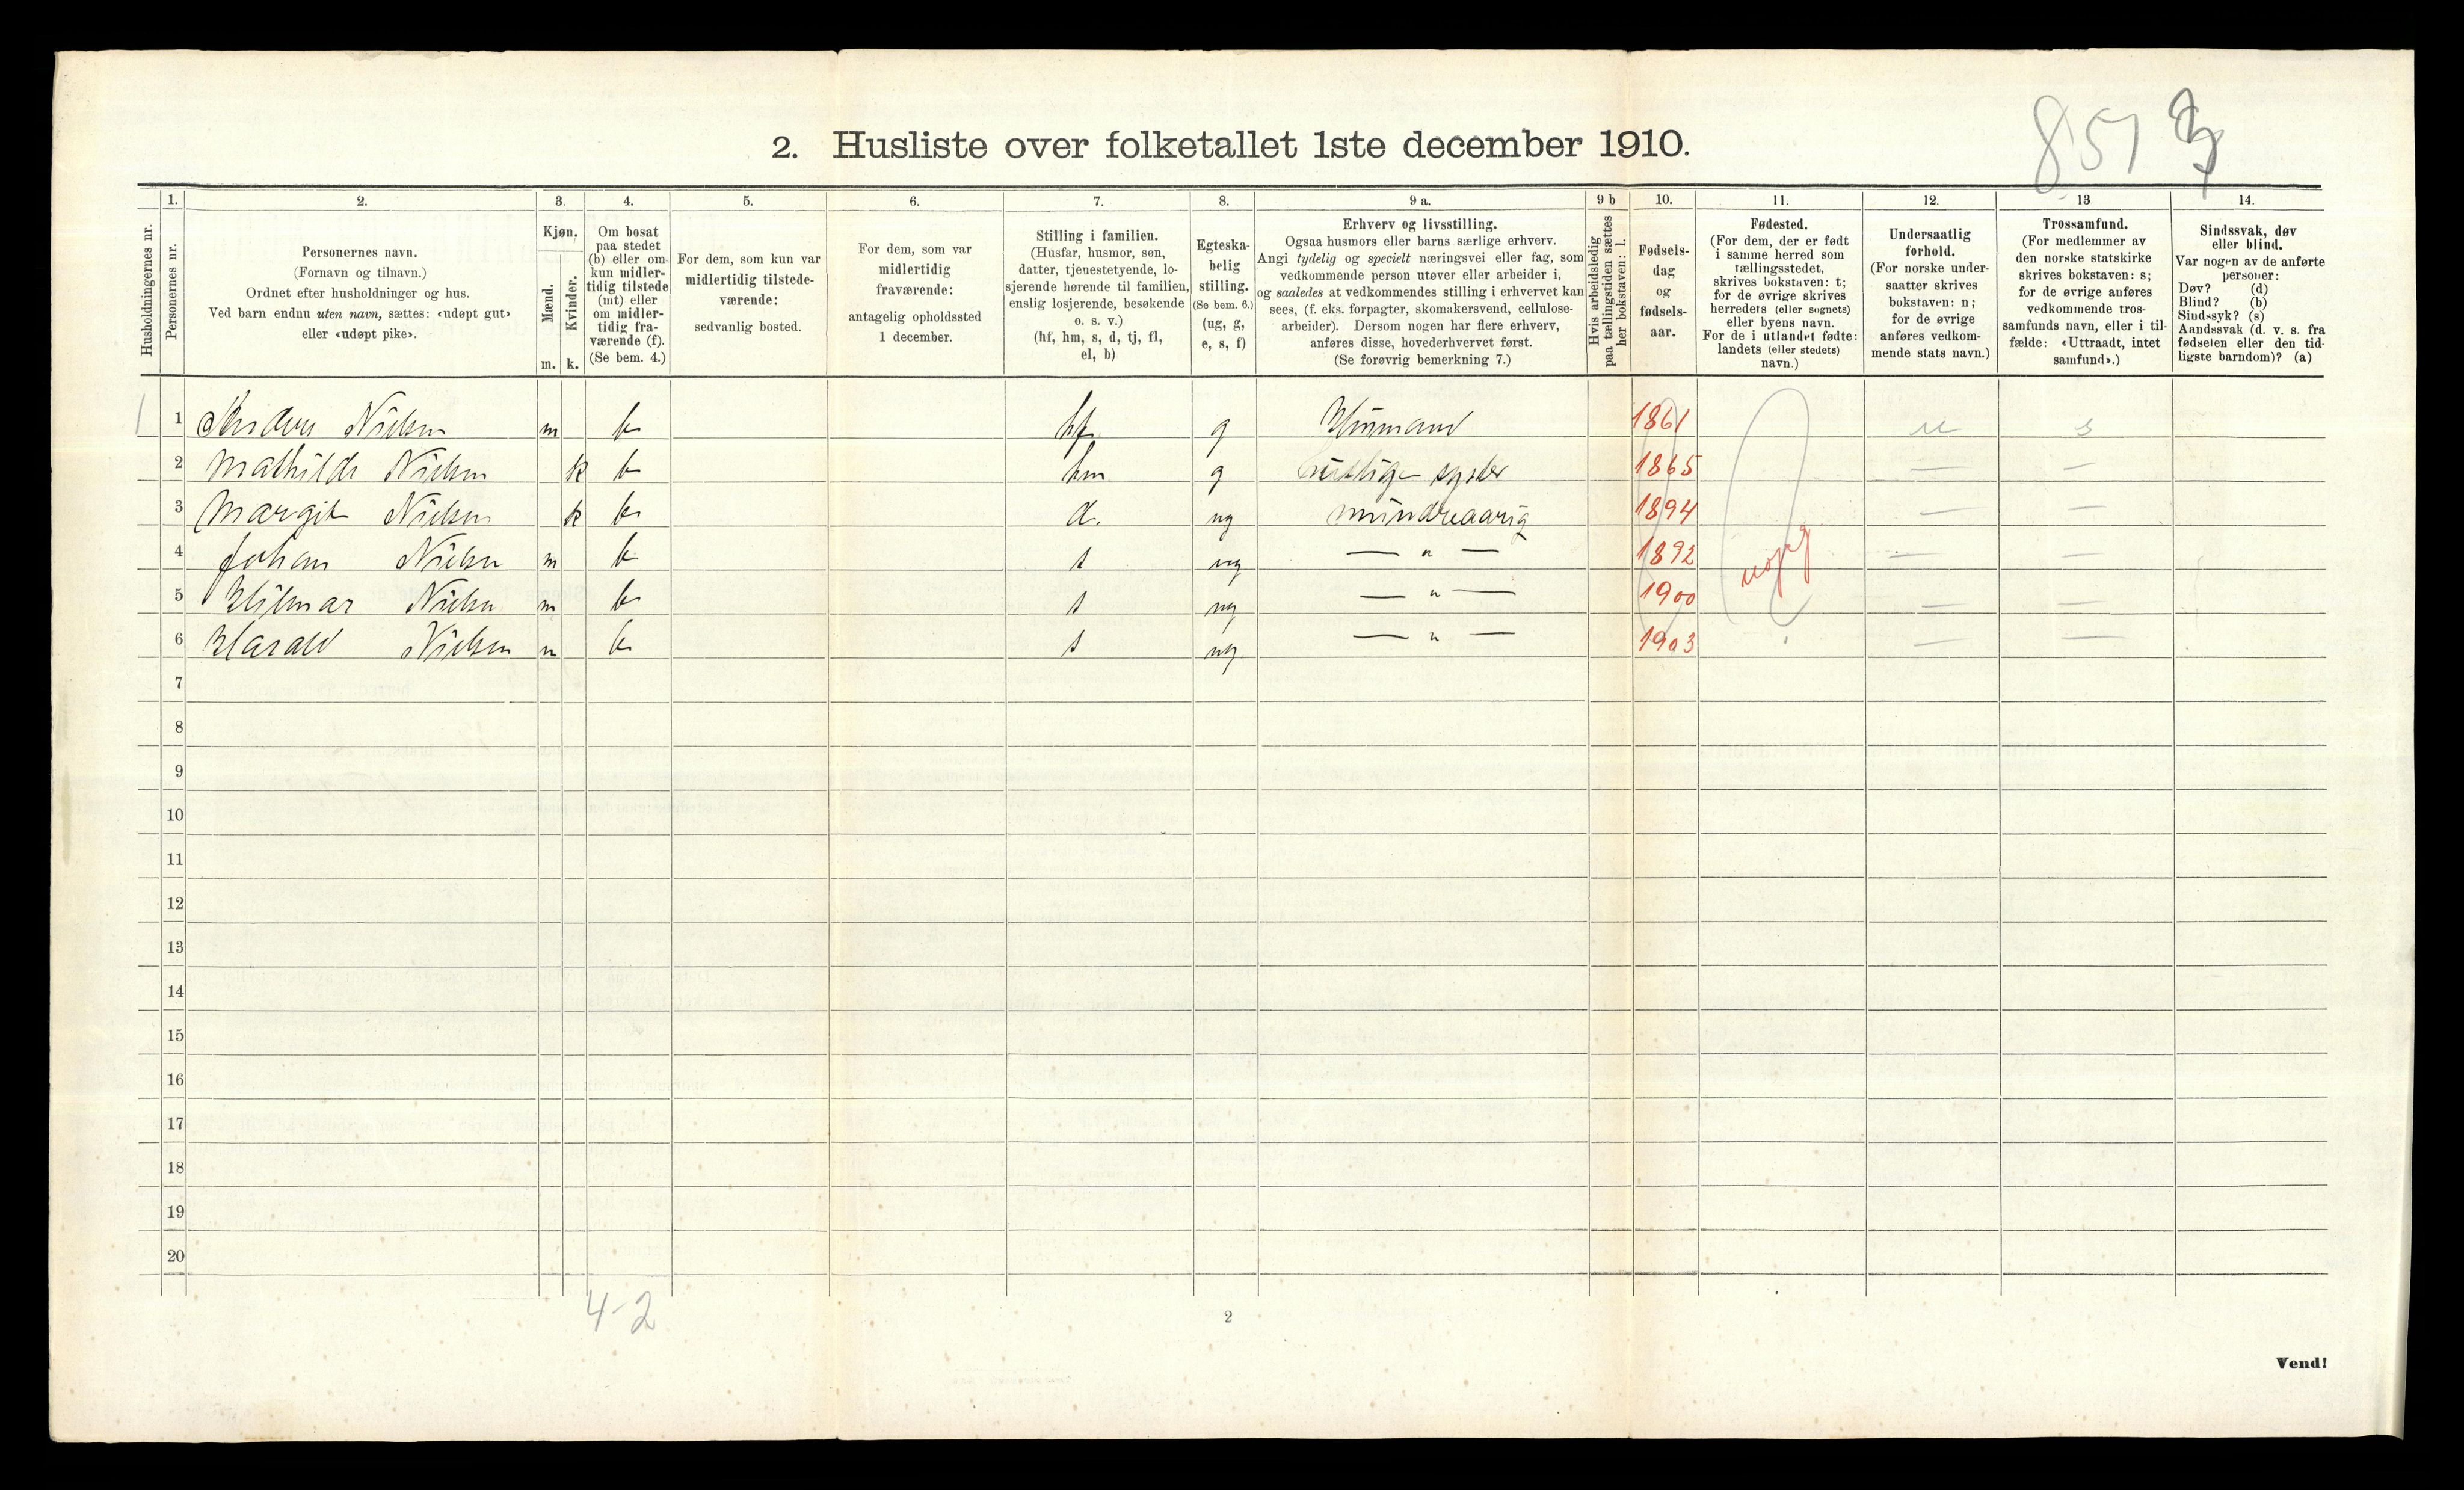 851 3
2. Husliste over folketallet 1ste december 1910.
Husholdningernes nr.
1. Personernes nr.
2. Personernes navn.
(Fornavn og tilnavn.)
Ordnet efter husholdninger og hus.
Ved barn endnu uten navn, sættes: «udøpt gut»
eller «udøpt pike».
3. Kjøn.
Mænd. m.
Kvinder. k.
4. Om bosat
paa stedet
(b) eller om
kun midler-
tidig tilstede
(mt) eller
om midler-
tidig fra-
værende (f).
(Se bem. 4.)
5. For dem, som kun var
midlertidig tilstede-
værende:
sedvanlig bosted.
6. For dem, som var
midlertidig
fraværende:
antagelig opholdssted
1 december.
7. Stilling i familien.
(Husfar, husmor, søn,
datter, tjenestetyende, lo-
sjerende hørende til familien,
enslig losjerende, besøkende
o. s. v.)
(hf, hm, s, d, tj, fl,
el, b)
8. Egteska-
belig
stilling.
(Se bem. 6.)
(ug, g,
e, s, f)
9 a. Erhverv og livsstilling.
Ogsaa husmors eller barns særlige erhverv.
Angi tydelig og specielt næringsvei eller fag, som
vedkommende person utøver eller arbeider i,
og saaledes at vedkommendes stilling i erhvervet kan
sees, (f. eks. forpagter, skomakersvend, cellulose-
arbeider). Dersom nogen har flere erhverv,
anføres disse, hovederhvervet først.
(Se forøvrig bemerkning 7.)
9 b Hvis arbeidsledig
paa tællingstiden sættes
her bokstaven: l.
10. Fødsels-
dag
og
fødsels-
aar.
11. Fødested.
(For dem, der er født
i samme herred som
tællingsstedet,
skrives bokstaven: t;
for de øvrige skrives
herredets (eller sognets)
eller byens navn.
For de i utlandet fødte:
landets (eller stedets)
navn.)
12. Undersaatlig
forhold.
(For norske under-
saatter skrives
bokstaven: n;
for de øvrige
anføres vedkom-
mende stats navn.)
13 Trossamfund.
(For medlemmer av
den norske statskirke
skrives bokstaven: s;
for de øvrige anføres
vedkommende tros-
samfunds navn, eller i til-
fælde: «Uttraadt, intet
samfund».)
14. Sindssvak, døv
eller blind.
Var nogen av de anførte
personer:
Døv? (d)
Blind? (b)
Sindssyk? (s)
Aandssvak (d. v. s. fra
fødselen eller den tid-
ligste barndom)? (a)
1 1 Anders Nielsen m b hf g Husmand 1861 n s
2 Mathilde Nielsen k b hm g syster 1865 — —
3 Margit Nielsen k b d. ug mindreaarig 1894 — —
4 Johan Nielsen m b s ug — " — 1892 — —
5 Hilmar Nielsen m b s ug — " — 1900 — —
6 Harald Nielsen m b s ug — " — 1903 — —
uopg
7
8
9
10
11
12
13
14
15
16
17
18
19
20
4-2
2
Vend!